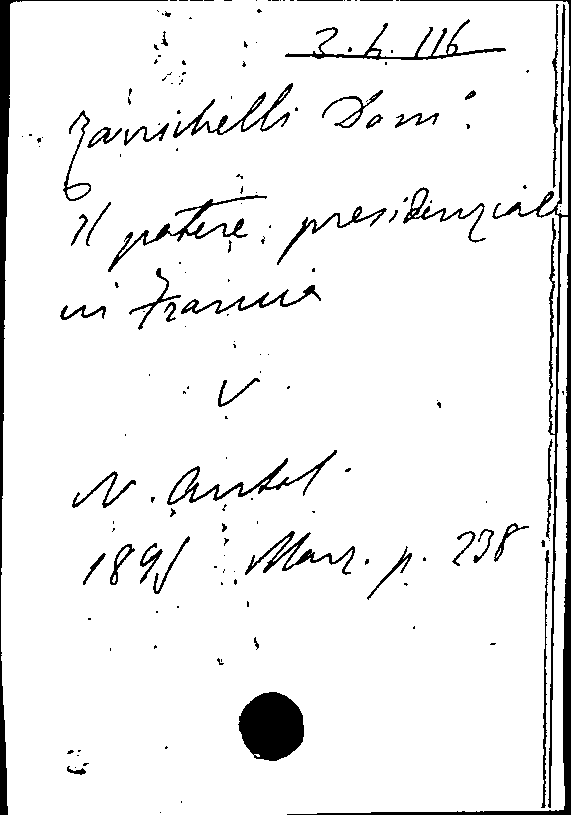 3.6.116
Zanichelli Dom.º
Il potere presidenziale
in Francia
V.
N. Antol.
1895 Marz. p. 238